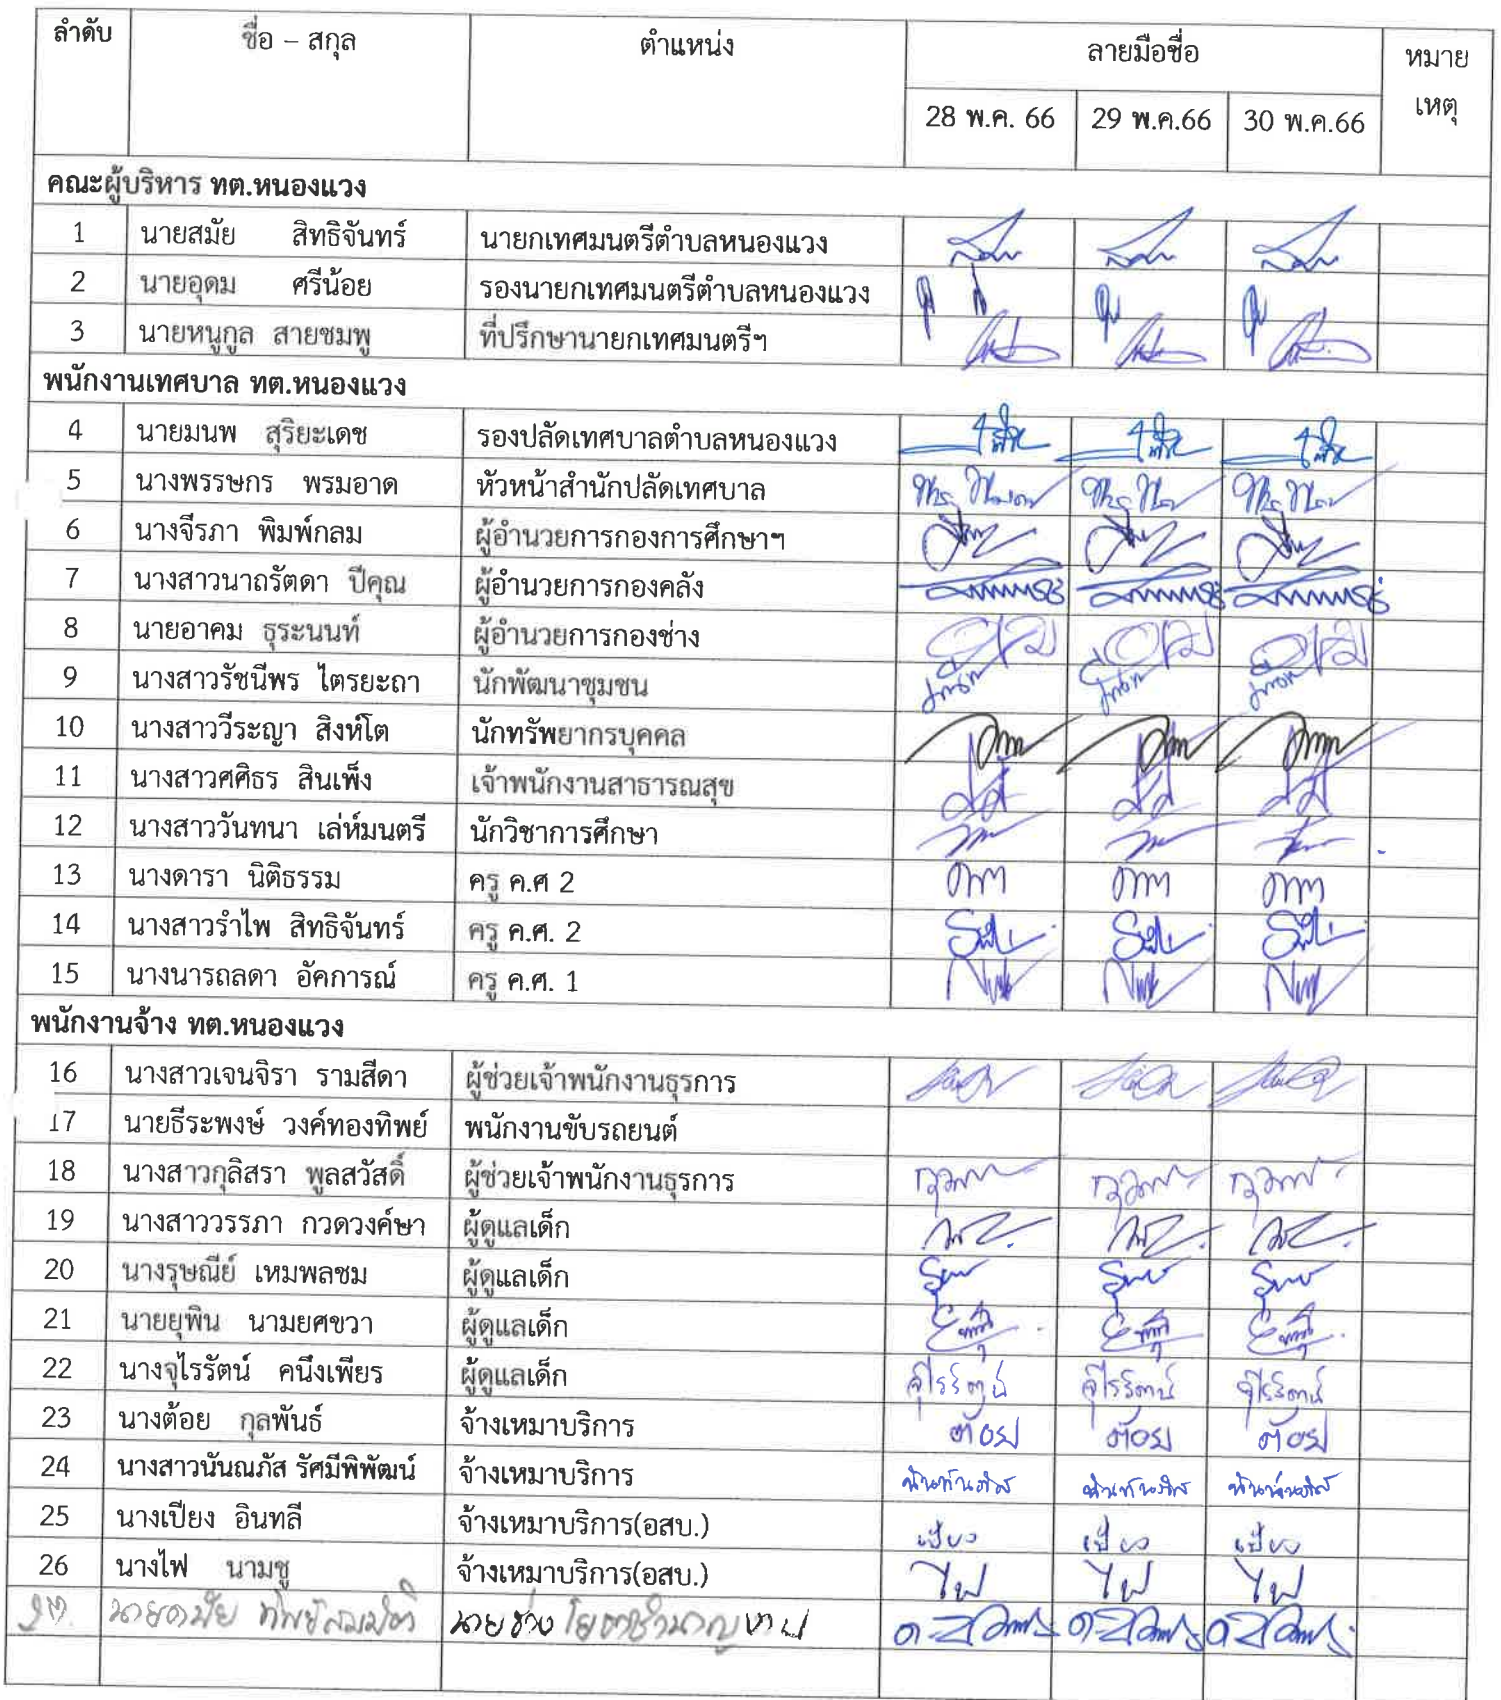 ลำดับ ชื่อ – สกุล ตำแหน่ง ลายมือชื่อ หมาย
28 พ.ค. 66 29 พ.ค.66 30 พ.ค.66 เหตุ
คณะผู้บริหาร ทต.หนองแวง
1 นายสมัย สิทธิจันทร์ นายกเทศมนตรีตำบลหนองแวง
2 นายอุดม ศรีน้อย รองนายกเทศมนตรีตำบลหนองแวง
3 นายหนูกูล สายชมพู ที่ปรึกษานายกเทศมนตรีฯ
พนักงานเทศบาล ทต.หนองแวง
4 นายมนพ สุริยะเดช รองปลัดเทศบาลตำบลหนองแวง
5 นางพรรษกร พรมอาด หัวหน้าสำนักปลัดเทศบาล
6 นางจีรภา พิมพ์กลม ผู้อำนวยการกองการศึกษาฯ
7 นางสาวนาถรัตดา ปีคุณ ผู้อำนวยการกองคลัง
8 นายอาคม ธุระนนท์ ผู้อำนวยการกองช่าง
9 นางสาวรัชนีพร ไตรยะถา นักพัฒนาชุมชน
10 นางสาววีระญา สิงห์โต นักทรัพยากรบุคคล
11 นางสาวศศิธร สินเพ็ง เจ้าพนักงานสาธารณสุข
12 นางสาววันทนา เล่ห์มนตรี นักวิชาการศึกษา
13 นางดารา นิติธรรม ครู ค.ศ 2
14 นางสาวรำไพ สิทธิจันทร์ ครู ค.ศ. 2
15 นางนารถลดา อัคการณ์ ครู ค.ศ. 1
พนักงานจ้าง ทต.หนองแวง
16 นางสาวเจนจิรา รามสีดา ผู้ช่วยเจ้าพนักงานธุรการ
17 นายธีระพงษ์ วงค์ทองทิพย์ พนักงานขับรถยนต์
18 นางสาวกุลิสรา พูลสวัสดิ์ ผู้ช่วยเจ้าพนักงานธุรการ
19 นางสาววรรภา กวดวงค์ษา ผู้ดูแลเด็ก
20 นางรุษณีย์ เหมพลชม ผู้ดูแลเด็ก
21 นายยุพิน นามยศขวา ผู้ดูแลเด็ก
22 นางจุไรรัตน์ คนึงเพียร ผู้ดูแลเด็ก จุไรรัตน์ จุไรรัตน์ จุไรรัตน์
23 นางต้อย กุลพันธ์ จ้างเหมาบริการ ต้อย ต้อย ต้อย
24 นางสาวนันณภัส รัศมีพิพัฒน์ จ้างเหมาบริการ
25 นางเปียง อินทลี จ้างเหมาบริการ(อสบ.) เปียง เปียง เปียง
26 นางไฟ นามชู จ้างเหมาบริการ(อสบ.) ไฟ ไฟ ไฟ
๒๗. นายช่างโยธาชำนาญงาน